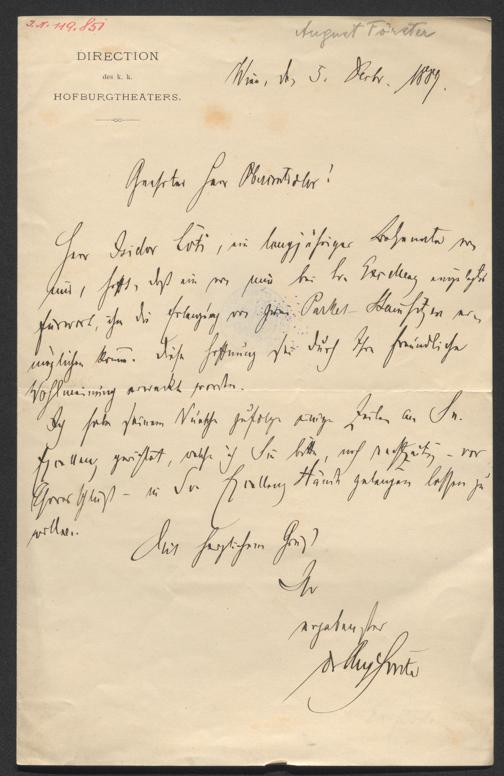 I.N. 119.851
August Förster
DIRECTION
des k. k.
HOFBURGTHEATERS.
Wien, den 5. 1889.
Geehrter Herr !
Herr Isidor ein langjähriger Bekannter von
mir, hofft, daß ein von mir bei
Fürwort, ihm die Erlangung von zwei Parket- er-
möglichen könne. Diese Hoffnung sei durch Ihre freundliche
Wohlmeinung erweckt worden.
Ich habe seinem Wunsche zufolge einige Zeilen an Se.
Excellenz gerichtet, welche ich Sie bitte, noch rechtzeitig – vor
– in Sr. Excellenz Hände gelangen lassen zu
wollen.
Mit herzlichem Gruß
Ihr
ergebenster
Dr Aug Förster